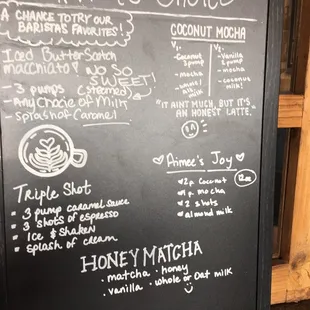 Choice
A CHANCE TO TRY OUR
BARISTAS FAVORITES!
Iced Butter Scotch
macchiato!
NO SO
SWEET!
- 3 pumps (steamed)
- Any choice of Milk
- splash of Caramel
Triple Shot
3 pump caramel sauce
3 shots of espresso
Ice & Shaken
splash of cream
COCONUT MOCHA
V.1-
- Coconut
pump
- mocha
milk
- Vanilla
pump
- mocha
- coconut
milk!
"IT AINT MUCH, BUT IT'S
AN HONEST LATTE."
Aimee's Joy
2p. Coconut
p. mocha
2 shots
almond milk
12oz
HONEY MATCHA
· matcha · honey
· vanilla · whole or Oat milk